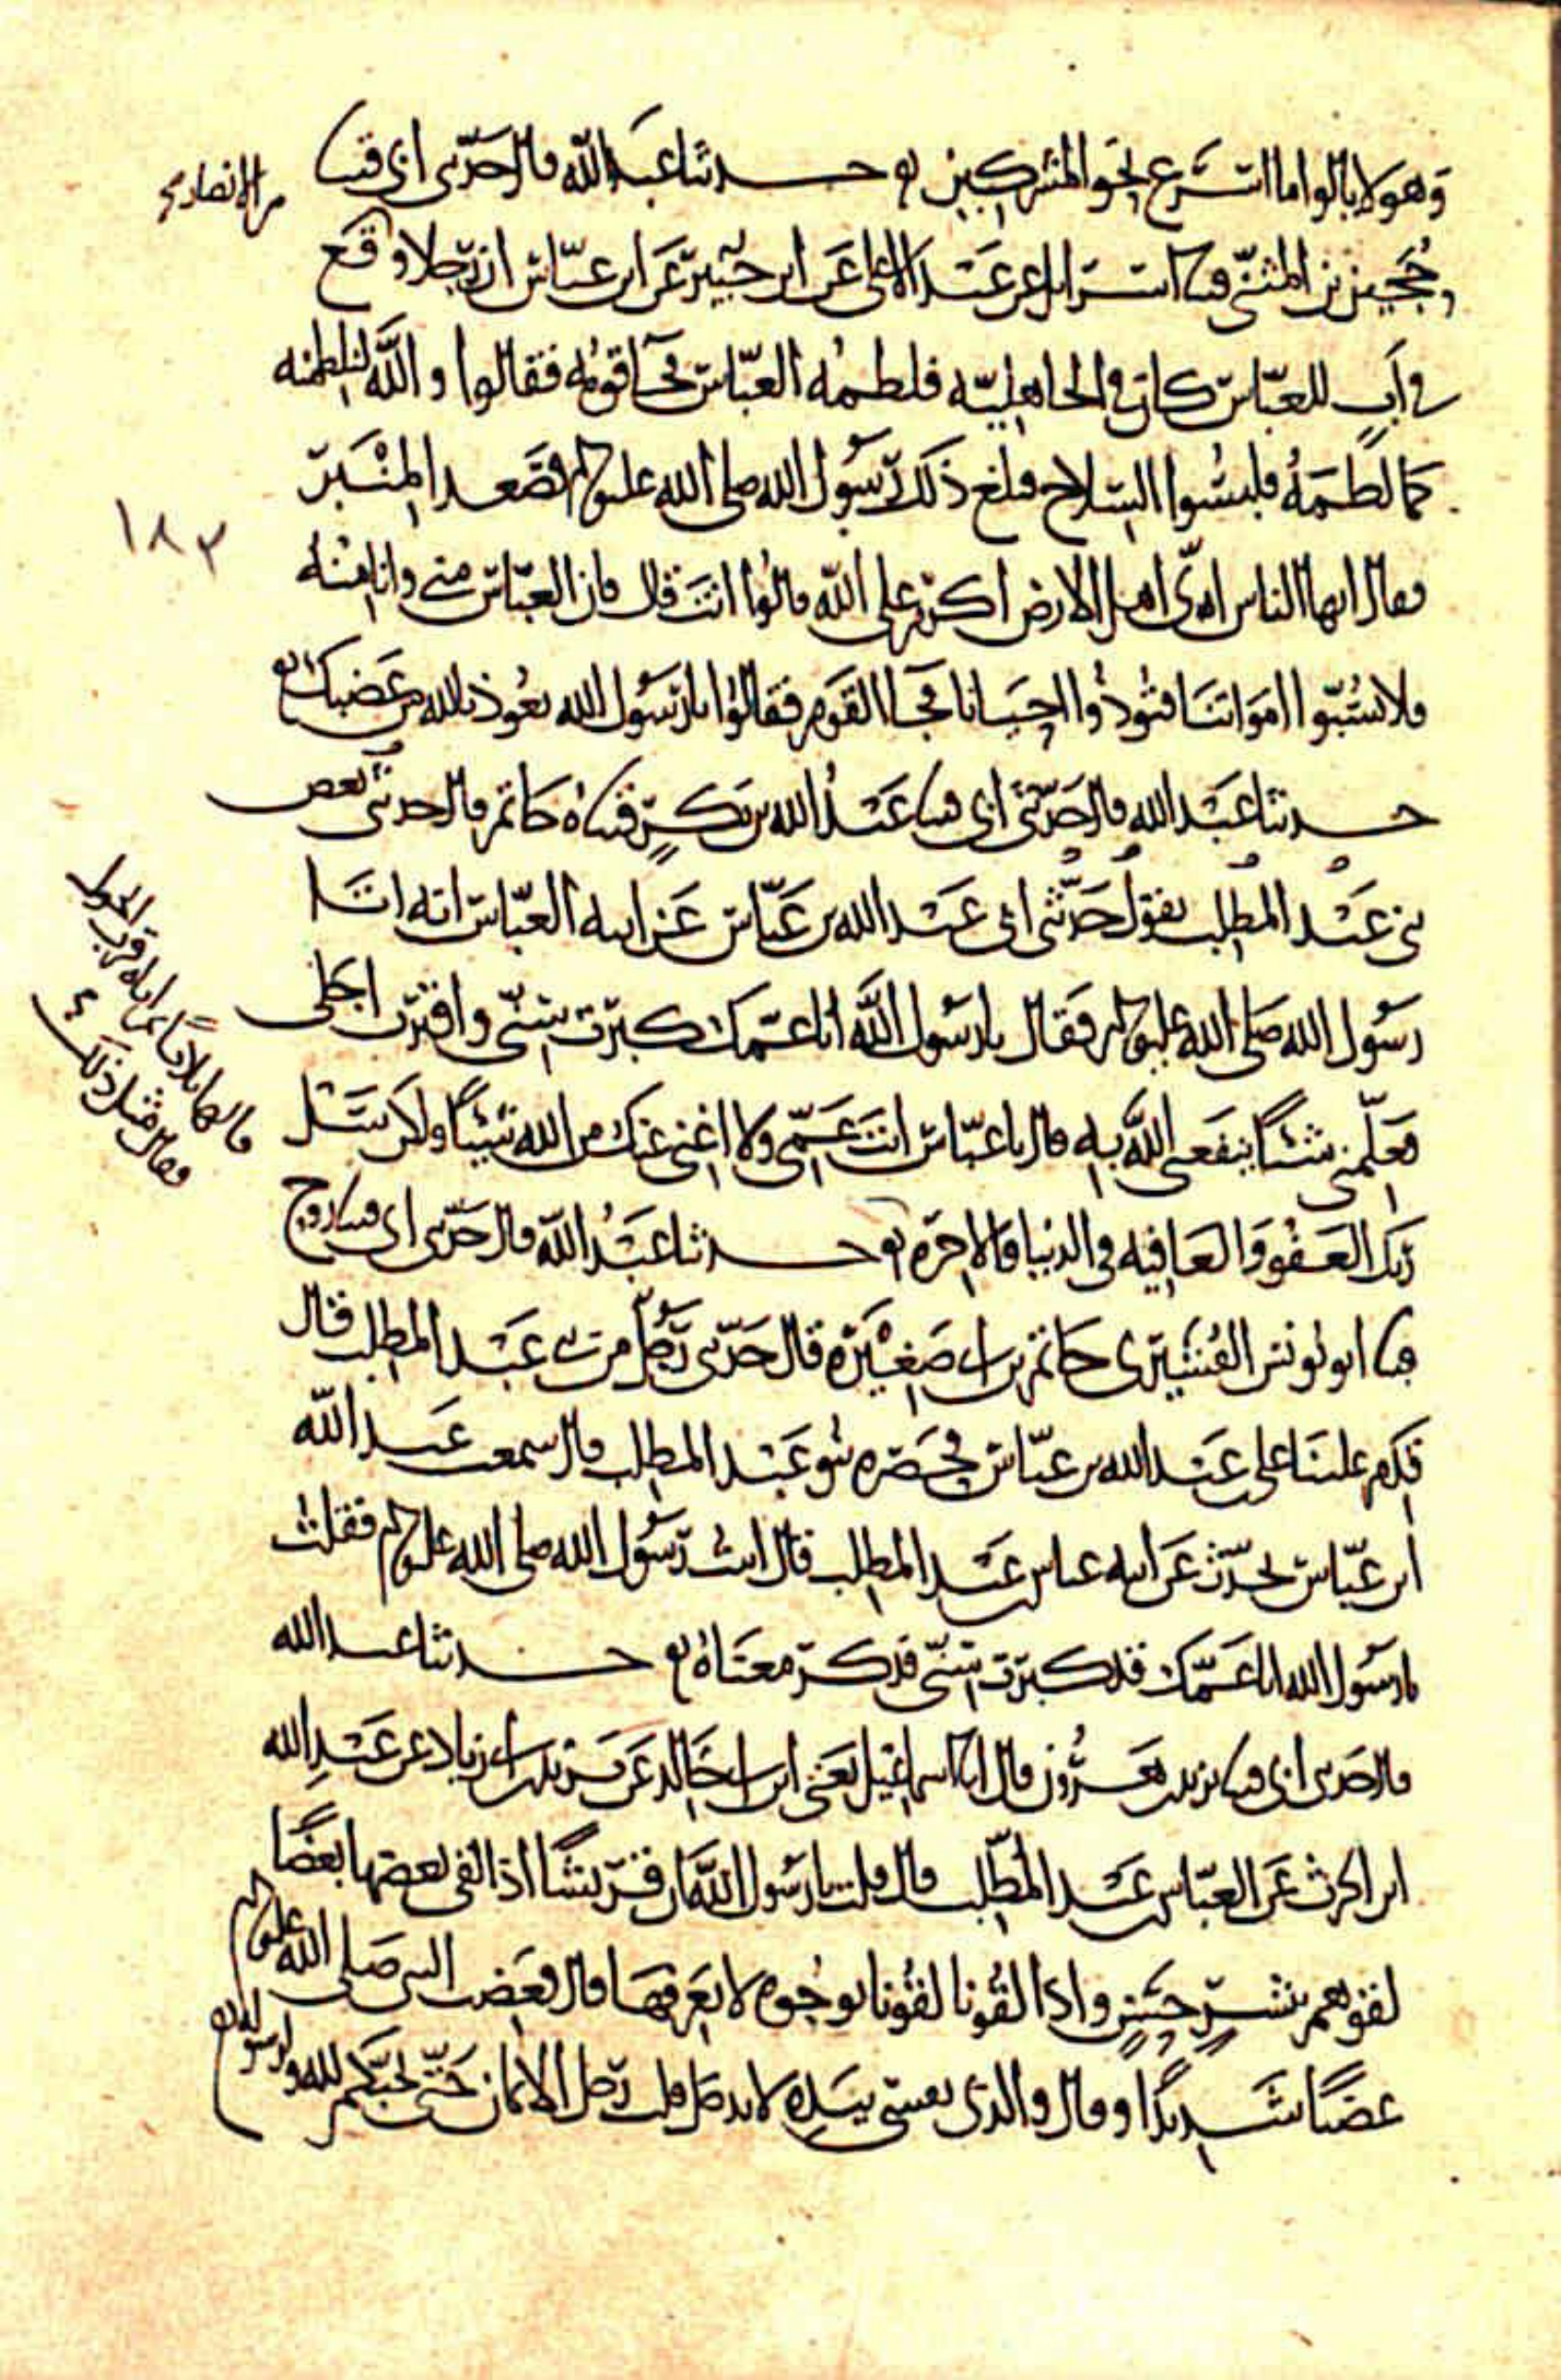 وهو لا يألوا ما اسرع نحو المشركين حدثنا عبد الله قال حدثني ابي قثنا
من الانصار
حجين بن المثنى قثنا اسرائيل عن عبد الاعلى عن ابن جبير عن ابن عباس ان رجلا وقع
في اب للعباس كان في الجاهلية فلطمه العباس فجا قومه فقالوا والله لنلطمنه
كما لطمه فلبسوا السلاح فبلغ ذلك رسول الله صلى الله عليه وسلم فصعد المنبر
١٨٣
فقال ايها الناس اي اهل الارض اكرم على الله قالوا انت قال فان العباس مني وانا منه
فلا تسبوا امواتنا فتؤذوا احيانا فجا القوم فقالوا يا رسول الله نعوذ بالله من غضبك
حدثنا عبد الله قال حدثني ابي قثنا عبد الله بن بكر قثناه حاتم قال حدثني بعض
بني عبد المطلب يقول حدثني ابي عبد الله بن عباس عن ابيه العباس انه اتا
رسول الله صلى الله عليه وسلم فقال يا رسول الله انا عمك كبرت سني واقترب اجلي
فعلمني شيئا ينفعني الله به قال يا عباس انت عمي ولا اغني عنك من الله شيئا ولكن سل
قالها ثلاثا ثم اتاه قرب الحول
فقال مثل ذلك
ربك العفو والعافيه في الدنيا والاخره حدثنا عبد الله قال حدثني ابي قثنا روح
قثنا ابو يونس القشيري حاتم بن ابي صغيره قال حدثني رجل من بني عبد المطلب قال
قدم علينا علي بن عبد الله بن عباس فحضره بنو عبد المطلب قال سمعت عبد الله
ابن عباس يحدث عن ابيه عباس بن عبد المطلب قال اتيت رسول الله صلى الله عليه وسلم فقلت
يا رسول الله انا عمك قد كبرت سني فذكر معناه حدثنا عبد الله
قال حدثني ابي قثنا يزيد بن هرون قال انا اسماعيل يعني ابن ابي خالد عن يزيد بن ابي زياد عن عبد الله
ابن الحرث عن العباس بن عبد المطلب قال قلت يا رسول الله ان قريشا اذا لقي بعضها بعضا
لقوهم ببشر حسن واذا لقونا لقونا بوجوه لا نعرفها قال فغضب النبي صلى الله عليه وسلم
غضبا شديدا وقال والذي نفسي بيده لا يدخل قلب رجل الايمان حتى يحبكم لله ولرسوله